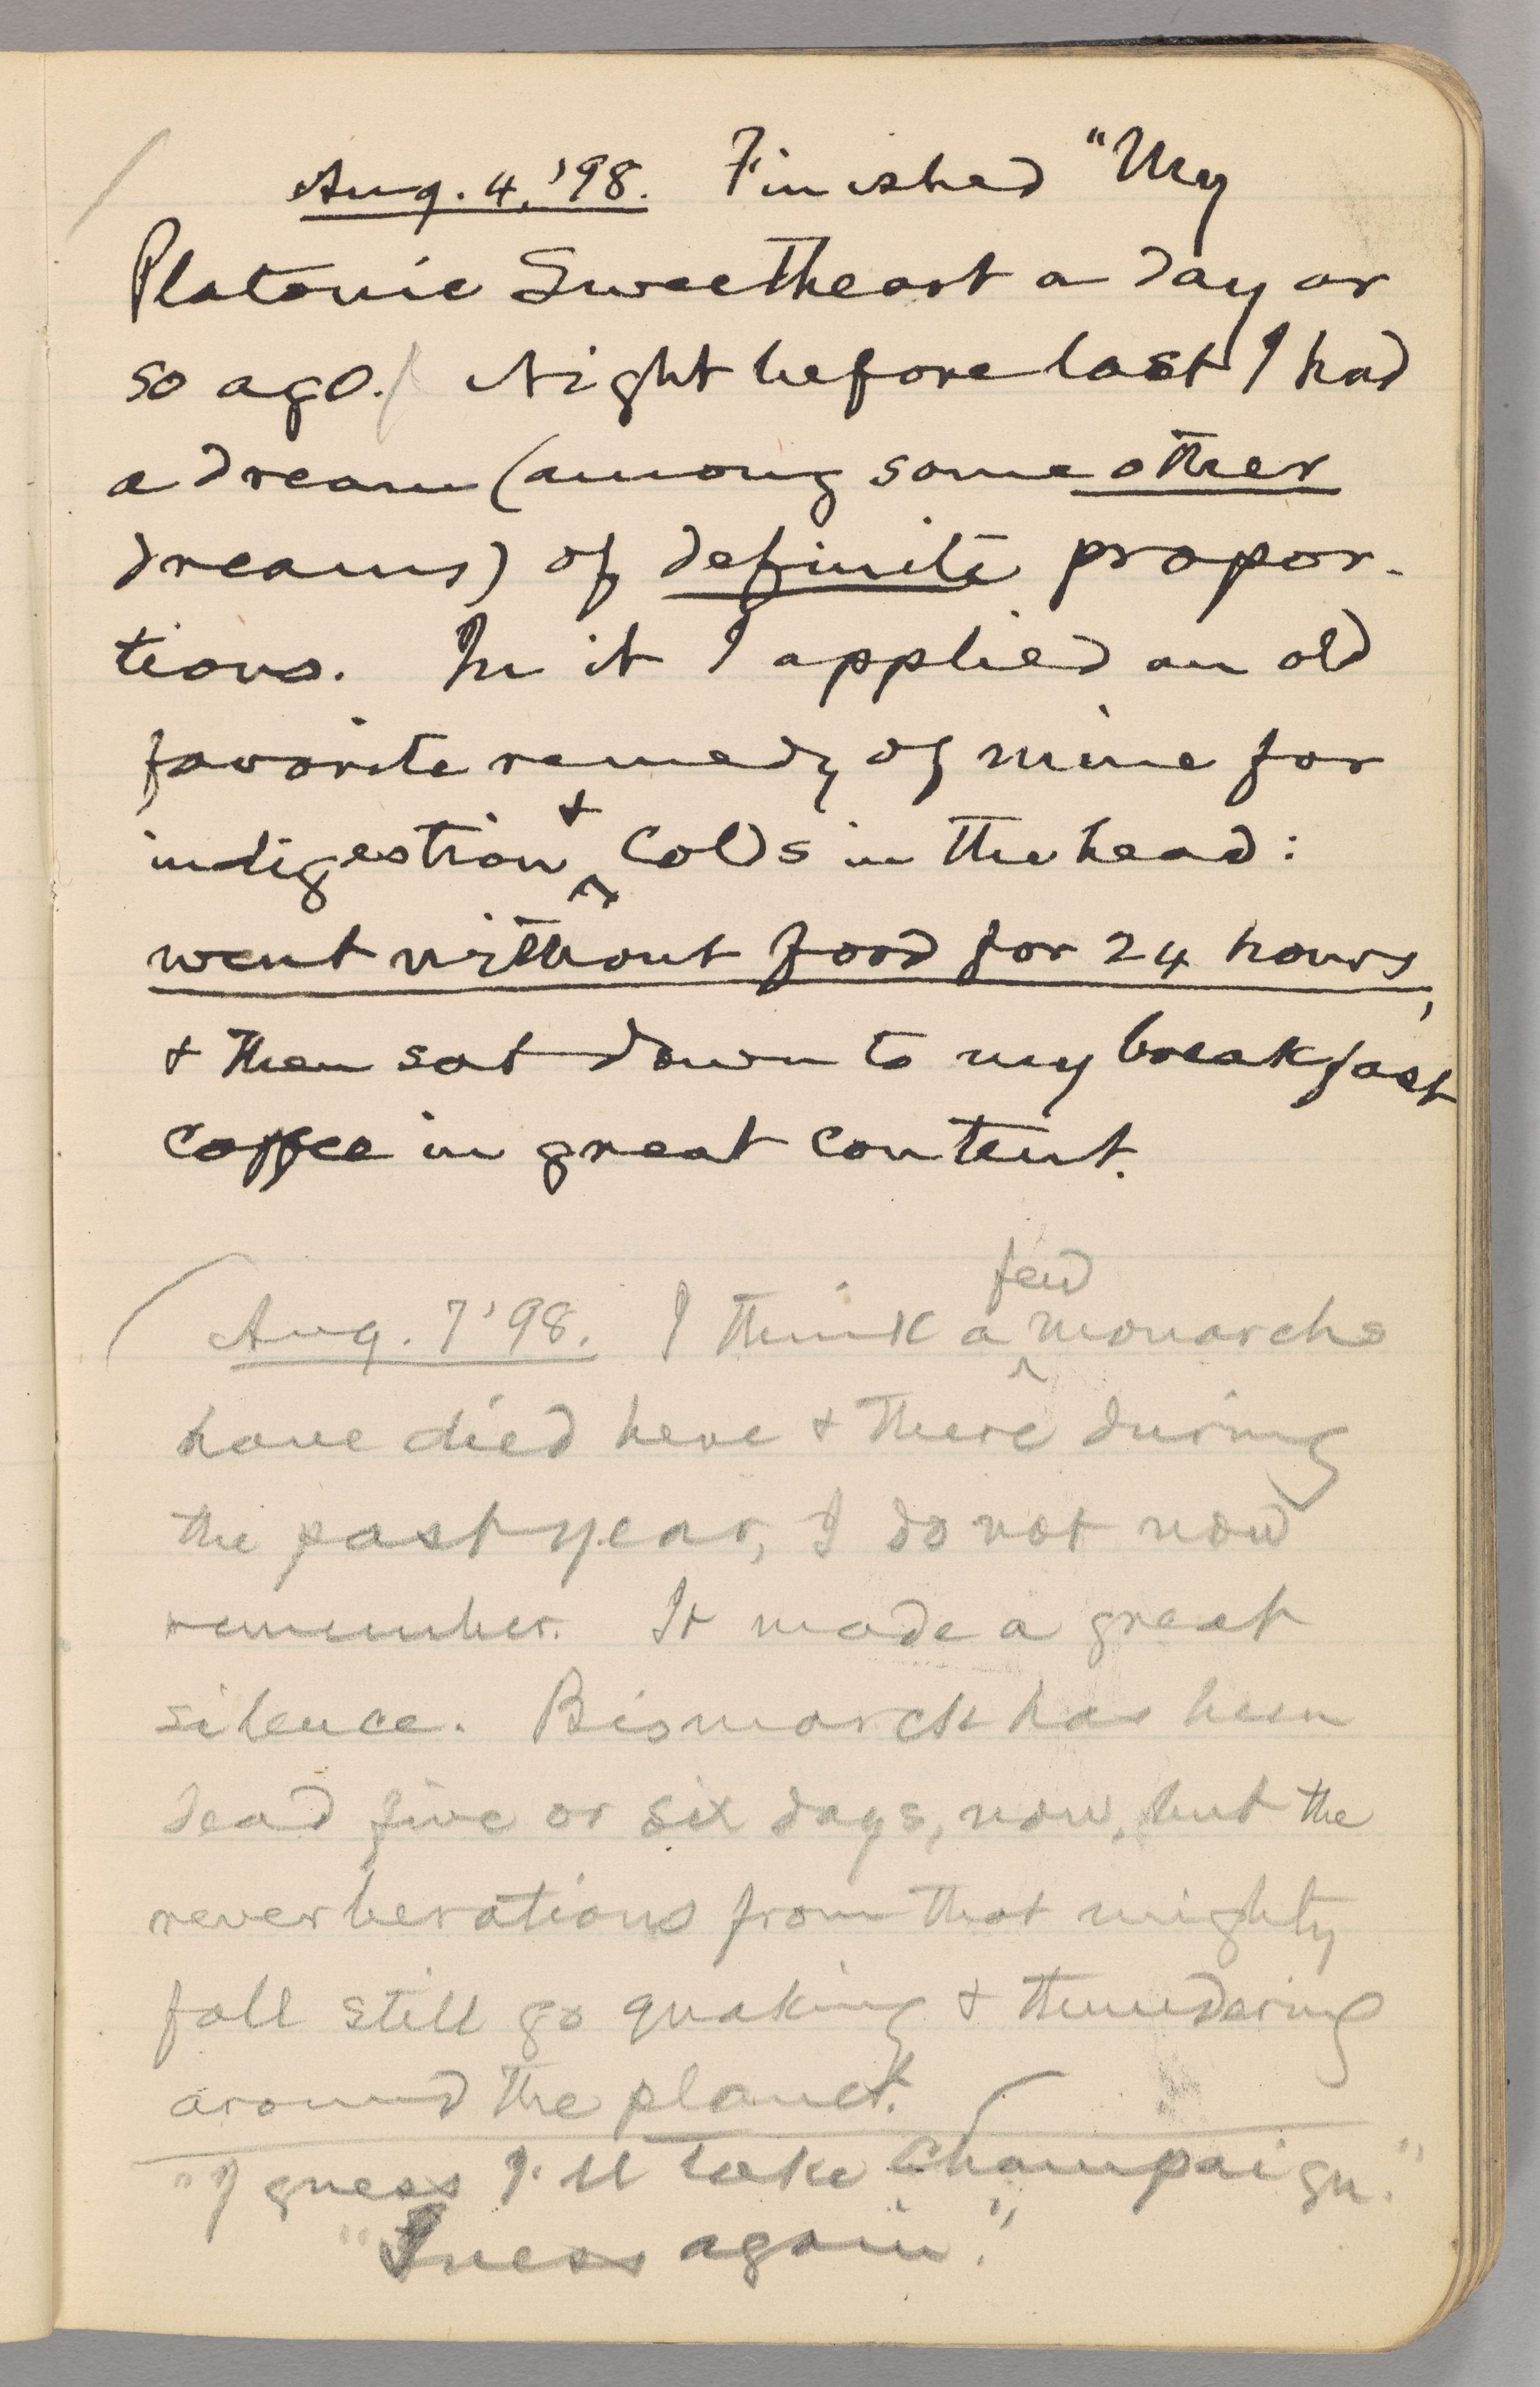 Aug. 4, '98. Finished "My
Platonic Sweetheart a day or
so ago./ Night before last I had
a dream (among some other
dreams) of definite propor-
tions. In it I applied an old
favorite remedy of mine for
indigestion & colds in the head:
went without food for 24 hours,
& then sat down to my breakfast
coffee in great content.
Aug. 7 '98. I think a few monarchs
have died here & there during
the past year, I do not now
remember. It made a great
silence. Bismarck has been
dead five or six days, now, but the
reverberations from that mighty
fall still go quaking & thundering
around the planet.
"I guess I'll take Champaign."
"Guess again."